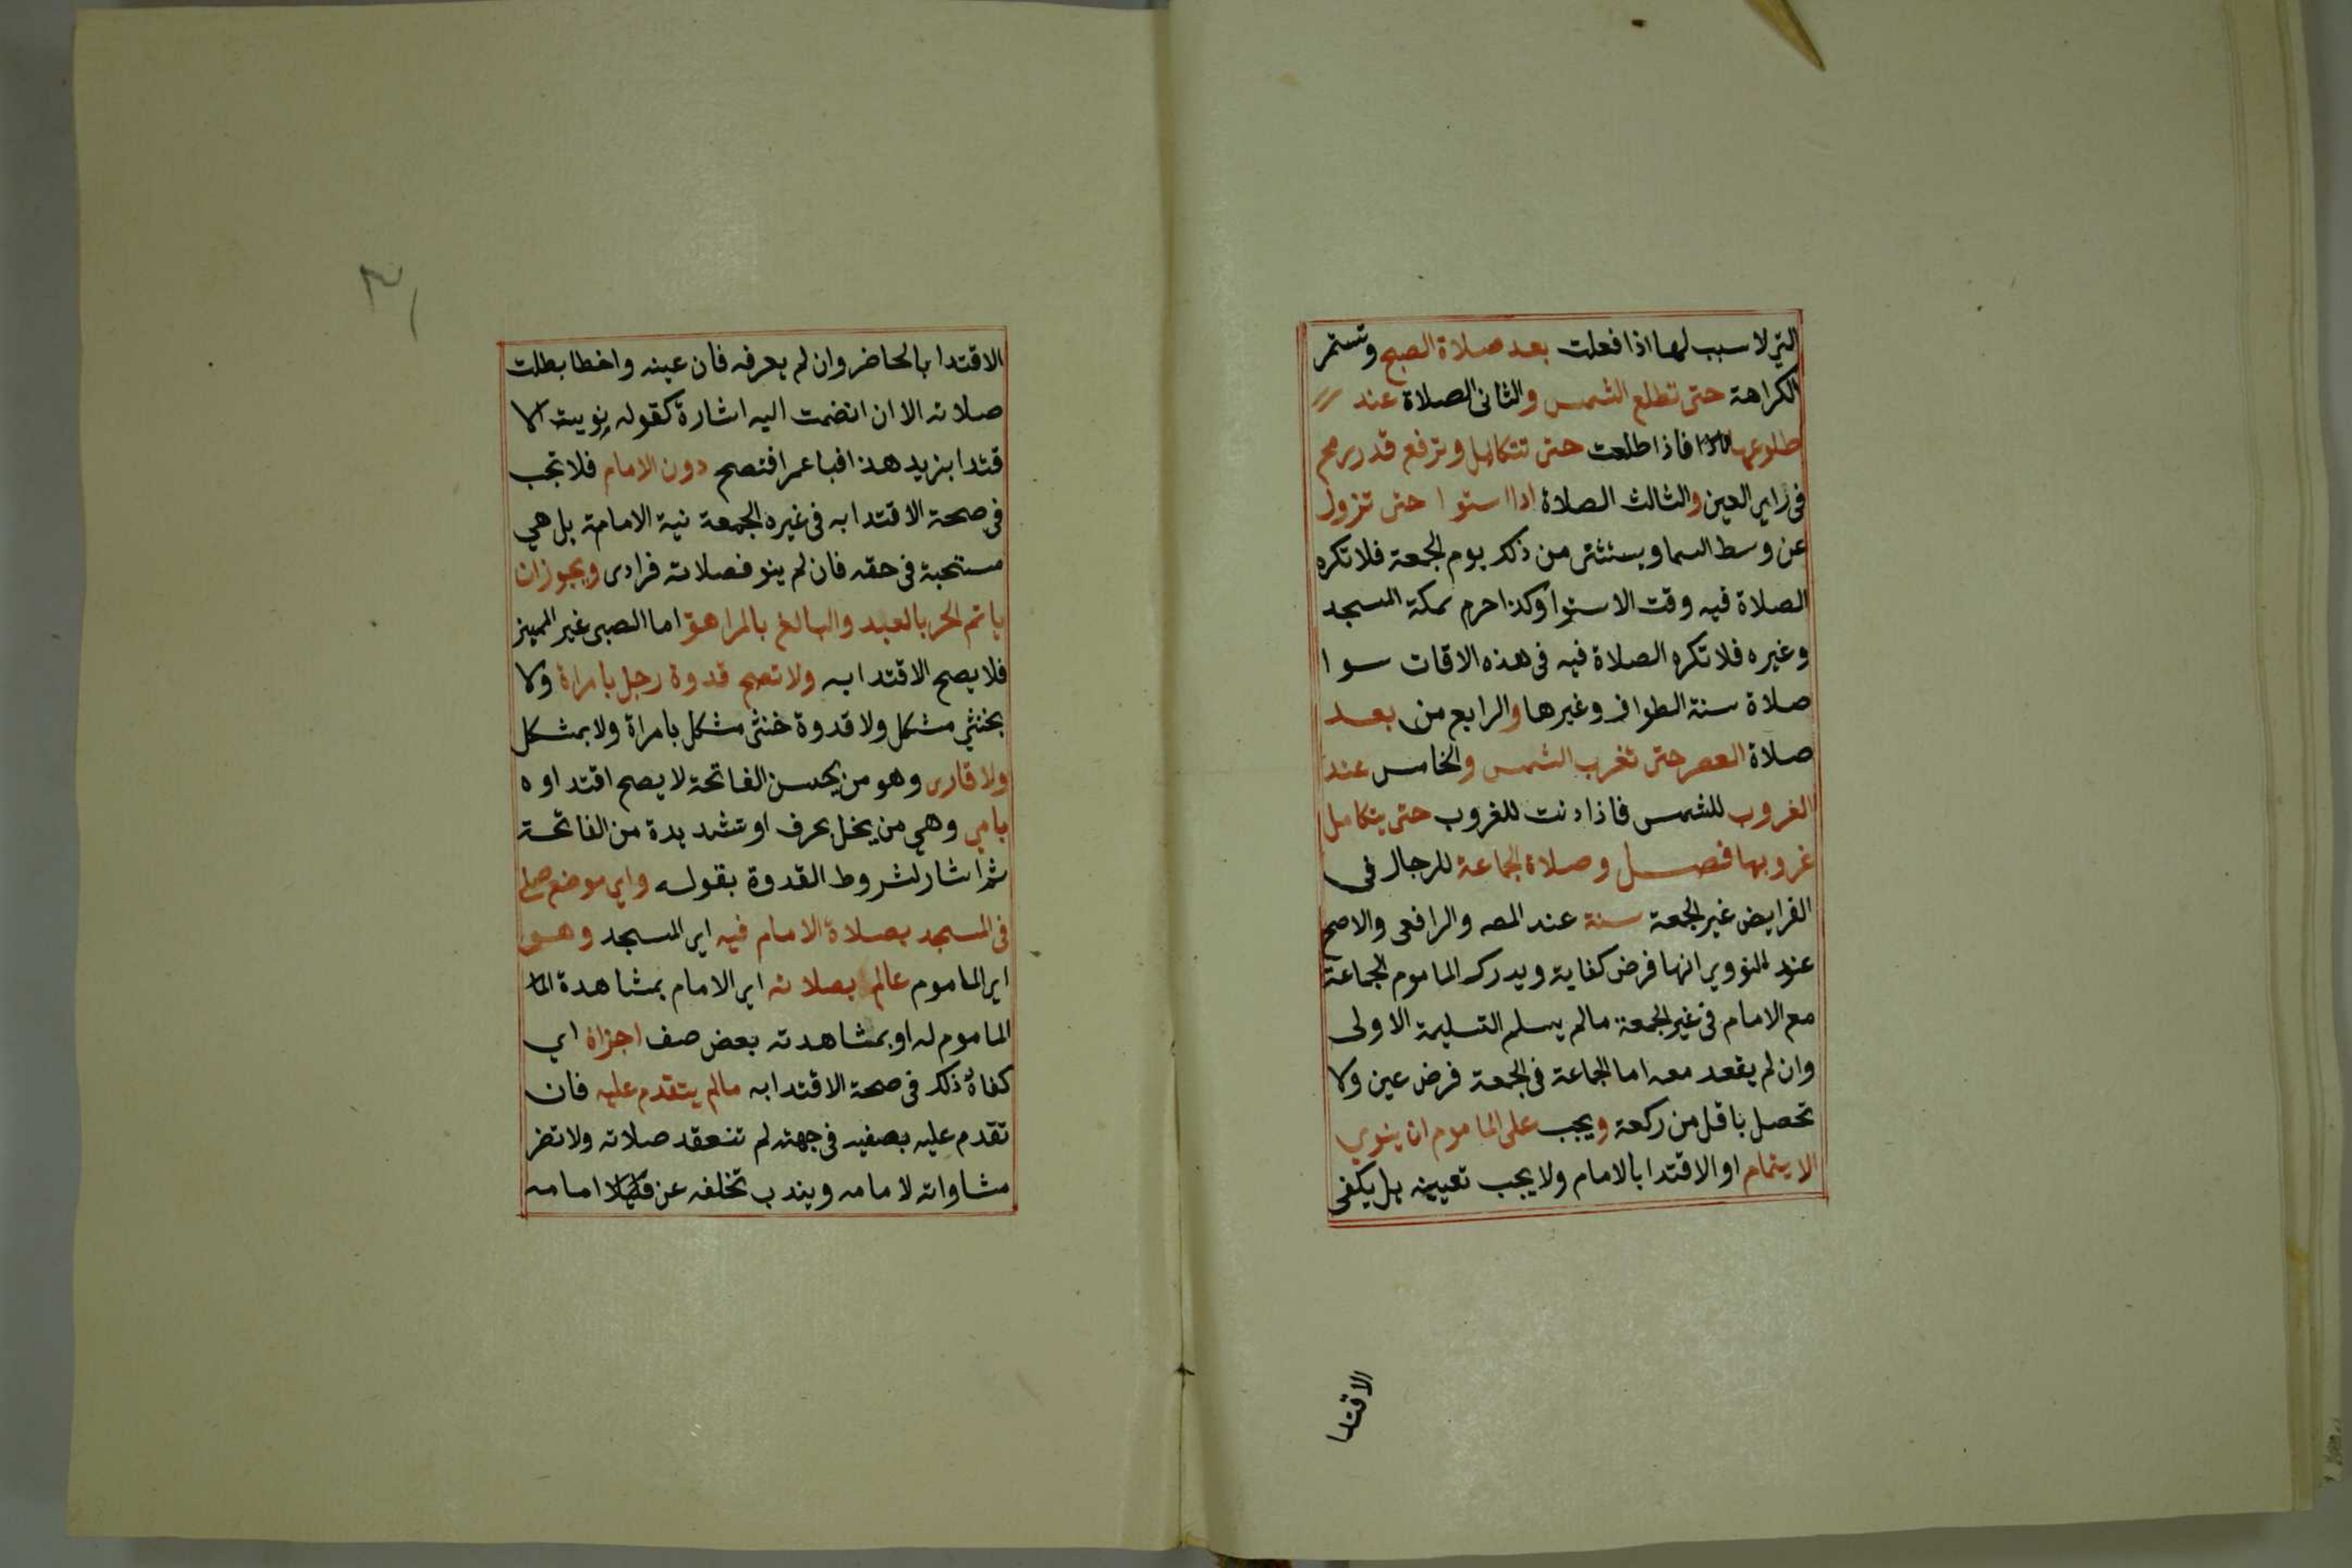 التي لا سبب لها اذا فعلت بعد صلاة الصبح وتستمر
الكراهة حتى تطلع الشمس والثاني الصلاة عند
طلوعها فاذا طلعت حتى تتكامل وترفع قدر رمح
في راي العين والثالث الصلاة اذا استوا حتى تزول
عن وسط السما ويستثنى من ذلك يوم الجمعة فلا تكره
الصلاة فيه وقت الاستوا وكذا حرم مكة المسجد
وغيره فلا تكره الصلاة فيه في هذه الاقات سوا
صلاة سنة الطواف وغيرها والرابع من بعد
صلاة العصر حتى تغرب الشمس والخامس عند
الغروب للشمس فاذا دنت للغروب حتى يتكامل
غروبها فصل وصلاة الجماعة للرجال في
الفرايض غير الجمعة سنة عند المصه والرافعي والاصح
عند النووي انها فرض كفاية ويدرك الماموم الجماعة
مع الامام في غير الجمعة مالم يسلم التسليمة الاولى
وان لم يقعد معه اما الجماعة في الجمعة فرض عين ولا
تحصل باقل من ركعة ويجب على الماموم ان ينوي
الايتمام او الاقتدا بالامام ولا يجب تعيينه بل يكفي
الاقتدا
الاقتدا بالحاضر وان لم يعرفه فان عينه واخطا بطلت
صلاته الا ان انضمت اليه اشارة كقوله نويت الا
قتدا بزيد هذا فبا عمرا فتصح دون الامام فلا تجب
في صحة الاقتدا به في غيره الجمعة نية الامامة بل هي
مستحبة في حقه فان لم ينو فصلاته فرادى ويجوز ان
ياتم الحر بالعبد والبالغ بالمراهق اما الصبي غير المميز
فلا يصح الاقتدا به ولا تصح قدوة رجل بامراة ولا
بخنثي مشكل ولا قدوة خنثى مشكل بامراة ولا بمشكل
ولا قارى وهو من يحسن الفاتحة لا يصح اقتداوه
بامي وهي من يخل بحرف او تشديدة من الفاتحة
ثم اشار لشروط القدوة بقوله واي موضع صلى
في المسجد بصلاة الامام فيه اي المسجد وهو
اي الماموم عالم بصلاته اي الامام بمشاهدة الما
الماموم له او بمشاهدته بعض صف اجزاه اي
كفاه ذلك في صحة الاقتدا به مالم يتقدم عليه فان
تقدم عليه بصفيه في جهته لم تنعقد صلاته ولا تضر
مشاواته لامامه ويندب تخلفه عن امامه